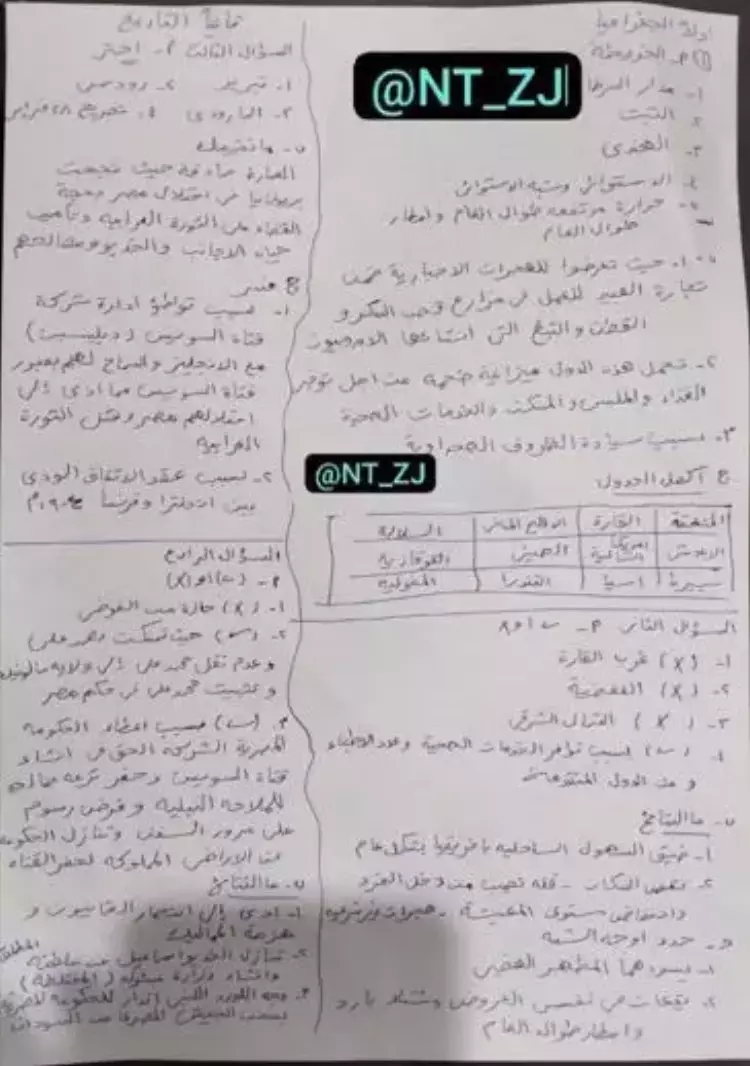 اولاً الجغرافيا
@NT_ZJ
١- مدار السرطا
٢- التبت
٣- الهندى
٤- الاستوائى وشبه الاستوائى
حرارة مرتفعه طوال العام وامطار
طوال العام
١- حيث تعرضوا للهجرات الاجبارية ضمن
تجارة العبيد للعمل فى مزارع قصب السكر و
القطن والتبغ التى انشاها الاوربيون
٢- تتحمل هذه الدول ميزانية ضخمه من اجل توفير
الغذاء والملبس والمسكن والخدمات الصحية
٣- بسبب سيادة الظروف الصحراوية
@NT_ZJ
ج أكمل الجدول
المنطقة | القارة | الاقليم المناخى | السلالة
امريكا الشمالية | الصينى | القوقازية
سيبيريا | اسيا | التندرا | المغولية
السؤال الثانى
١- (x) غرب القارة
٢- (x) الفضية
٣- (x) الشمال الشرقى
٤- (✓) بسبب توافر الخدمات الصحية وعدد الاطباء
و من الدول المتقدمة
ب- ما النتائج
١- ضيق السهول الساحليه بأفريقيا بشكل عام
٢- نقص السكان - قله نصيب من دخل الفرد
وانخفاض مستوى المعيشة - هجرات غير شرعيه
ج- حدد اوجه الشبه
١- يسودهما المظهر الهضبى
٢- يقعان فى نفس العروض وشتاء بارد
وامطار طوال العام
ثانياً التاريخ
السؤال الثالث أ- اختر
١- تبريز ٢- رودس
٣- البارودى ٤- تصريح ٢٨ فبراير
ب- ما تفسيرك
العبارة صادقه حيث نجحت
بريطانيا فى احتلال مصر بحجة
القضاء على الثورة العرابيه وتأمين
حياه الاجانب والخديو ومصالحهم
ج فسر
١- بسبب تواطؤ ادارة شركة
قناة السويس (ديليسبس)
مع الانجليز والسماح لهم بعبور
قناة السويس مما ادى إلى
احتلالهم مصر وفشل الثورة
العرابيه
٢- بسبب عقد الاتفاق الودى
بين انجلترا وفرنسا ١٩٠٤م
السؤال الرابع
أ- (✓) او (x)
١- (x) حالة من الفوضى
٢- (✓) حيث تمسكت
وعدم نقل محمد على إلى ولايه سالونيك
و تثبيت محمد على فى حكم مصر
٣- (✓) بسبب اعطاء الحكومه
المصرية الشركة الحق فى انشاء
قناة السويس وحفر ترعه صالحه
للملاحه النيليه وفرض رسوم
على مرور السفن وتنازل الحكومه
عن الاراضى المملوكه لحفر القناه
ب- ما النتائج
١- ادى إلى انتصار العثمانيون و
هزيمة المماليك
٢- تنازل الخديو اسماعيل عن سلطته المطلقة
وانشاء وزارة مسئوله (المختلطة)
٣- وجه اللورد اللنبى انذار للحكومه المصرية
بسحب الجيش المصرى من السودان